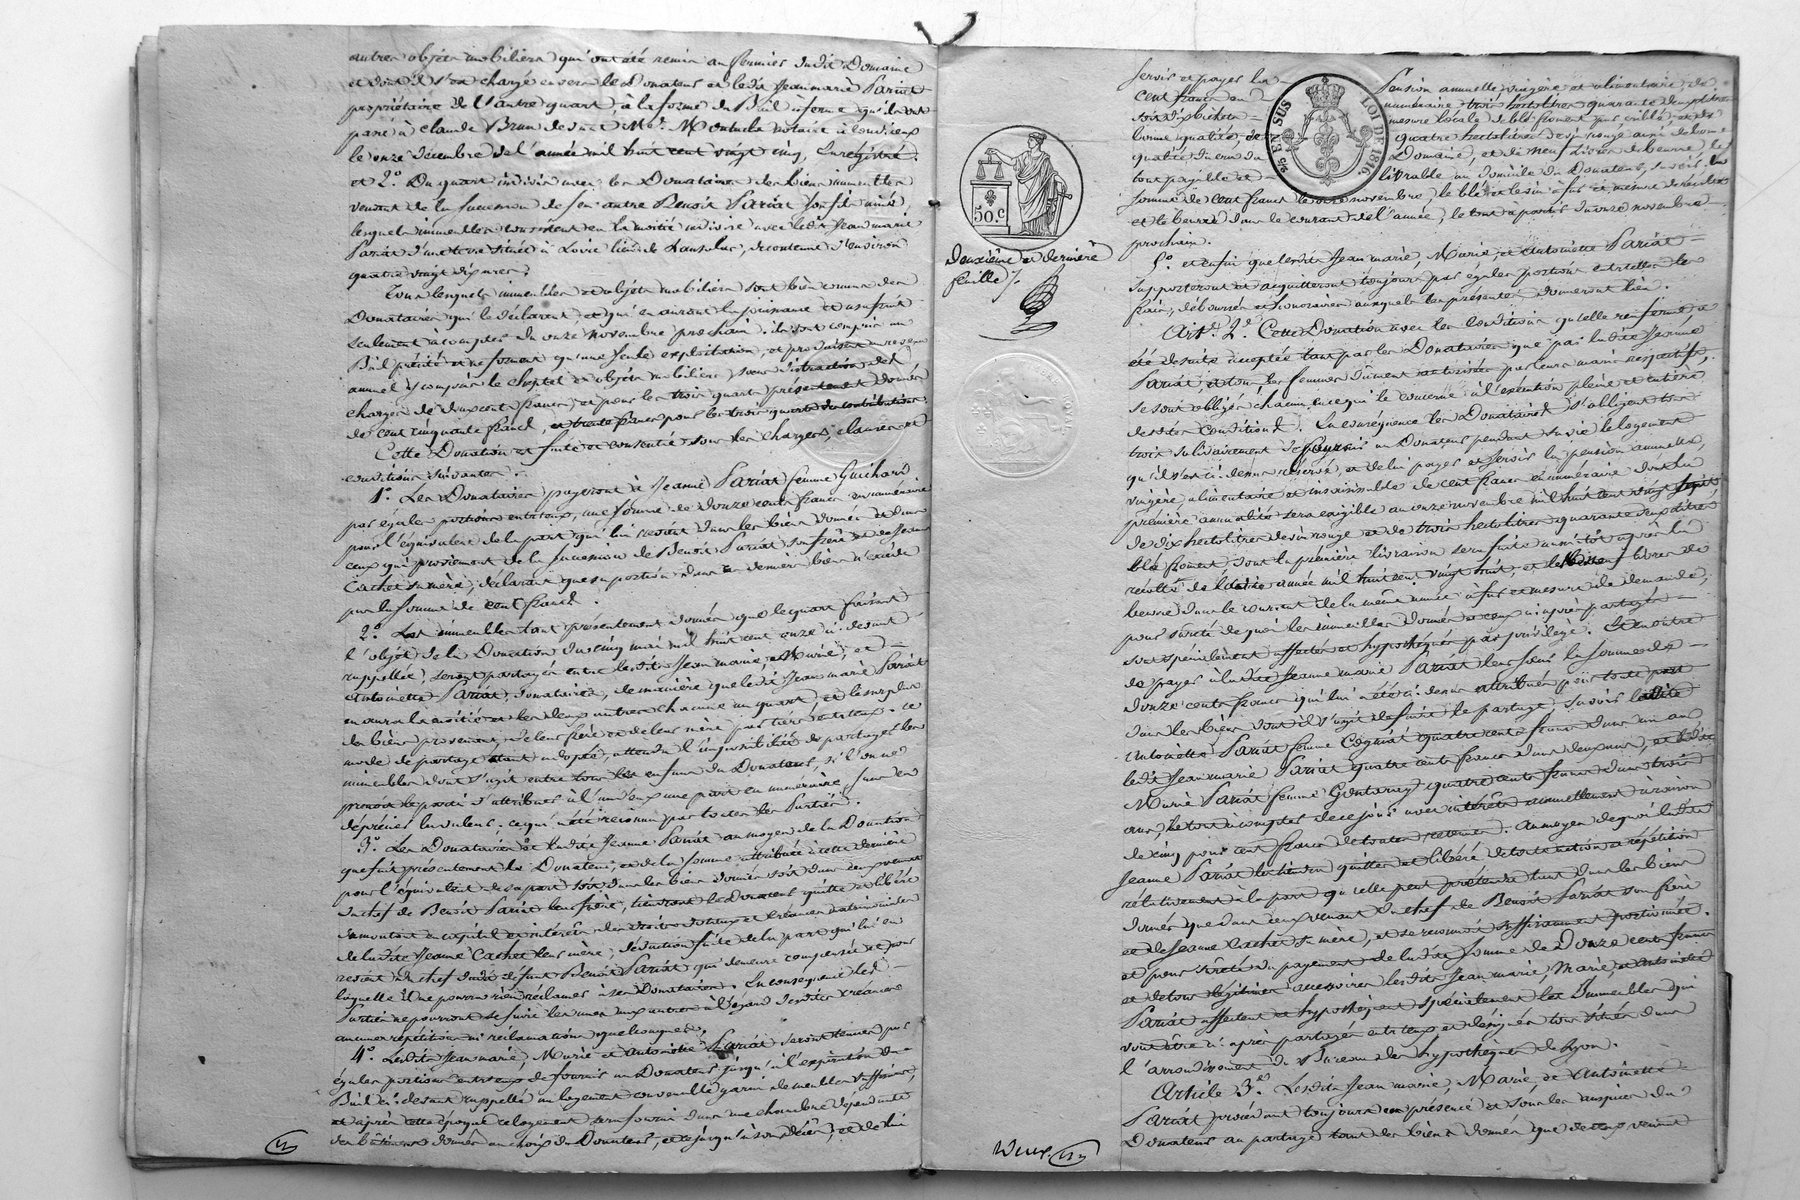 autres objets mobiliers qui ont été remis au fermier dudit Domaine
et dont il s'est chargé envers le Donateur et ledit Jean marie Pariat
propriétaire de l'autre quart à la forme du Bail à ferme qu'ils ont
passé à Claude Brun devant Me. notaire à
le onze décembre de l'année mil huit cent vingt cinq, Enregistré.
et 2.° Du quart indivis avec les Donataires des biens immeubles
venant de la succession de feu autre Benoit Pariat son fils ainé,
lesquels immeubles consistent en la moitié indivise avec ledit Jean marie
Pariat d'une terre située à lieu de contenue d'environ
quatre vingt dix ares;
Tous lesquels immeubles et objets mobiliers sont bien connus des
Donataires qui le déclarent et qui en auront la jouissance et usufruit
seulement à compter du onze novembre prochain. ils sont compris au
Bail précité et ne forment qu'une seule exploitation, et produisent un revenu
annuel y compris le cheptel et objets mobiliers, sans distraction des
charges de deux cent francs, et pour les trois quarts présentement donnés
de cent cinquante francs, et trente francs pour les trois quarts des contributions.
Cette Donation est faite et consentie sous les charges, clauses et
conditions suivantes.
1.° Les Donataires payeront à Jeanne Pariat femme Guichard
par égales portions entr'eux, une somme de douze cents francs en numéraire
pour l'équivalent de la part qui lui revient dans les biens donnés et dans
ceux qui proviennent de la succession de Benoit Pariat son frère et de Jeanne
Cachet sa mère, déclarant que sa portion dans ces derniers biens n'excède
pas la somme de cent francs.
2.° Les immeubles tant présentement donnés que le quart faisant
l'objet de la Donation du cinq mai mil huit cent onze ci devant
rappellée, seront partagés entre lesdits Jean marie, Marie, et
Antoinette Pariat, donataires, de manière que ledit Jean marie Pariat
en aura la moitié et les deux autres chacune un quart, et le surplus
des biens provenant de leur frère et de leur mère par tiers entr'eux. Ce
mode de partage étant adopté, attendu l'impossibilité de partager les
immeubles dont s'agit entre tous les enfans du Donateur, si l'on ne
prenoit le parti d'attribuer à l'un d'eux une part en numéraire sans en
déprécier la valeur. ce qui a été reconnu par toutes les Parties.
3.° Les Donataires et ladite Jeanne Pariat au moyen de la Donation
que fait présentement le Donateur, et de la somme attribuée à cette dernière
pour l'équivalent de sa part soit dans les biens donnés soit dans ceux venant
du chef de Benoit Pariat leur frère, tiendront le Donateur quitte et libéré
du montant en capital et intérêts des droits dotaux et créances matrimoniales
de ladite Jeanne Cachet leur mère, déduction faite de la part qui lui en
revient du chef dudit défunt Benoit Pariat qui demeure compensée et pour
laquelle il ne pourra rien réclamer à ses Donataires. En conséquence lesd.
Parties ne pourront se faire les unes aux autres à l'égard desdites créances
aucune répétition ni réclamation quelconques.
4.° Lesdits Jean marie, Marie et Antoinette Pariat seront tenus par
égales portions entr'eux de fournir au Donateur jusqu'à l'expiration du
Bail ci devant rappellé un logement convenable garni de meubles suffisans,
et après cette époque ce logement sera fourni dans une chambre dépendante
des bâtimens donnés au choix du Donateur, et ce jusqu'à son décès, et de lui
servir et payer la
cent francs en
soit dix
bonne qualité, et
qualité du cru du
tout payable et
somme de cent francs le onze novembre, le blé et le vin à fur et mesure des récoltes
et le beurre dans le courant de l'année, le tout à partir du onze novembre
prochain.
2/10 EN SUS
LOI DE 1816
Pension annuelle viagère et alimentaire de
numéraire trois hectolitres quarante deux litres
mesure locale de blé froment pur criblé, et dix
quatre hectolitres de vin rouge aussi de bonne
Domaine, et de neuf livres de beurre, le
livrable au domicile du Donateur, savoir la
50.c
Deuxième et dernière
feuille /.
5.° et enfin que lesdits Jean marie, Marie, et Antoinette Pariat
supporteront et acquitteront toujours par égales portions entr'elles les
frais, déboursés et honoraires auxquels les présentes donneront lieu.
Arte. 2.e Cette Donation avec les conditions qu'elle renferme, a
été de suite acceptée tant par les Donataires que par ladite Jeanne
Pariat, et tous les femmes dûment autorisées par leurs maris respectifs,
se sont obligés chacun en ce qui le concerne à l'exécution pleine et entière
desdites conditions. En conséquence les Donataires s'obligent tous
trois solidairement de fournir au Donateur pendant sa vie le logement
qu'il s'est ci dessus réservé, et de lui payer et servir la pension annuelle,
viagère, alimentaire et insaisissable de cent francs en numéraire dont la
première annuité sera exigible au onze novembre mil huit cent vingt sept,
de dix hectolitres de vin rouge et de trois hectolitres quarante deux litres
blé froment dont la première livraison sera faite aussitôt après la
récolte de ladite année mil huit cent vingt huit, et les neuf livres de
beurre dans le courant de la même année à fur et mesure de demande,
pour sûreté de quoi les immeubles donnés et ceux ci après partagés
sont spécialement affectés et hypothéqués par privilège. Et en outre
de payer à ladite Jeanne marie Pariat leur sœur la somme de
douze cents francs qui lui a été ci dessus attribuée pour toute part
dans les biens dont il s'agit de faire le partage, savoir ladite
Antoinette Pariat femme Cognat quatre cents francs dans un an
ledit Jean marie Pariat quatre cents francs dans deux ans, et ladite
Marie Pariat femme Gontarey quatre cents francs dans trois
ans, le tout à compter de ce jour avec intérêts annuellement à raison
de cinq pour cent francs de toutes retenues. Au moyen de quoi ladite
Jeanne Pariat les tiendra quittes et libérés de toute action et répétition
relativement à la part qu'elle peut prétendre tant dans les biens
donnés que dans ceux venant du chef de Benoit Pariat son frère
et de Jeanne Cachet sa mère, et se reconnoit suffisamment portionnée.
et pour sûreté du payement de ladite somme de Douze cents francs
et de tous légitimes accessoires lesdits Jean marie, Marie et Antoinette
Pariat affectent et hypothèquent spécialement les immeubles qui
vont être ci après partagés entr'eux et désignés tous situés dans
l'arrondissement du Bureau des hypothèques de Lyon.
Article 3.e Lesdits Jean marie, Marie, et Antoinette
Pariat procédant toujours en présence et sous les auspices du
Donateur au partage tant des biens donnés que de ceux venant